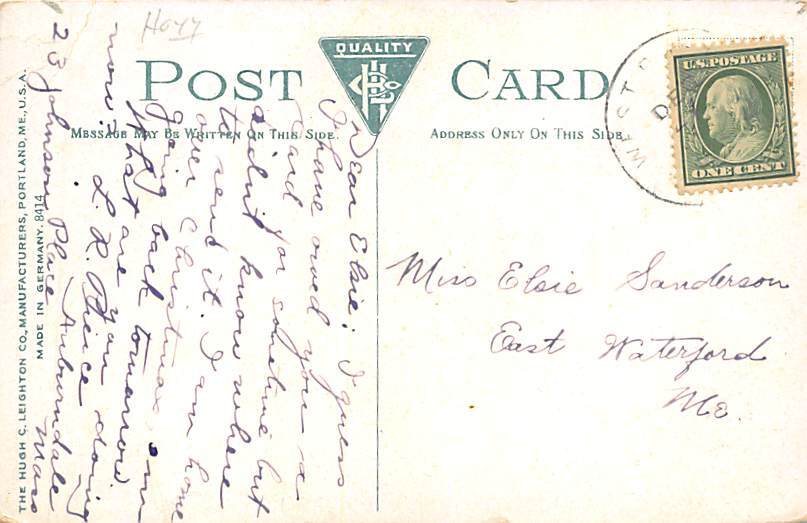 POST CARD
QUALITY
MESSAGE MAY BE WRITTEN ON THIS SIDE
ADDRESS ONLY ON THIS SIDE
U.S. POSTAGE
ONE CENT
WEST
DE
Dear Elsie; I guess
I have owed you a
card for sometime but
didnt know where
to send it. I am home
over Christmas, am
going back tomorrow.
What are you doing
now? L. R.
23 Johnson Place Auburndale
Mass
Miss Elsie Sanderson
East Waterford
Me.
THE HUGH C. LEIGHTON CO., MANUFACTURERS, PORTLAND, ME., U.S.A.
MADE IN GERMANY. 8414